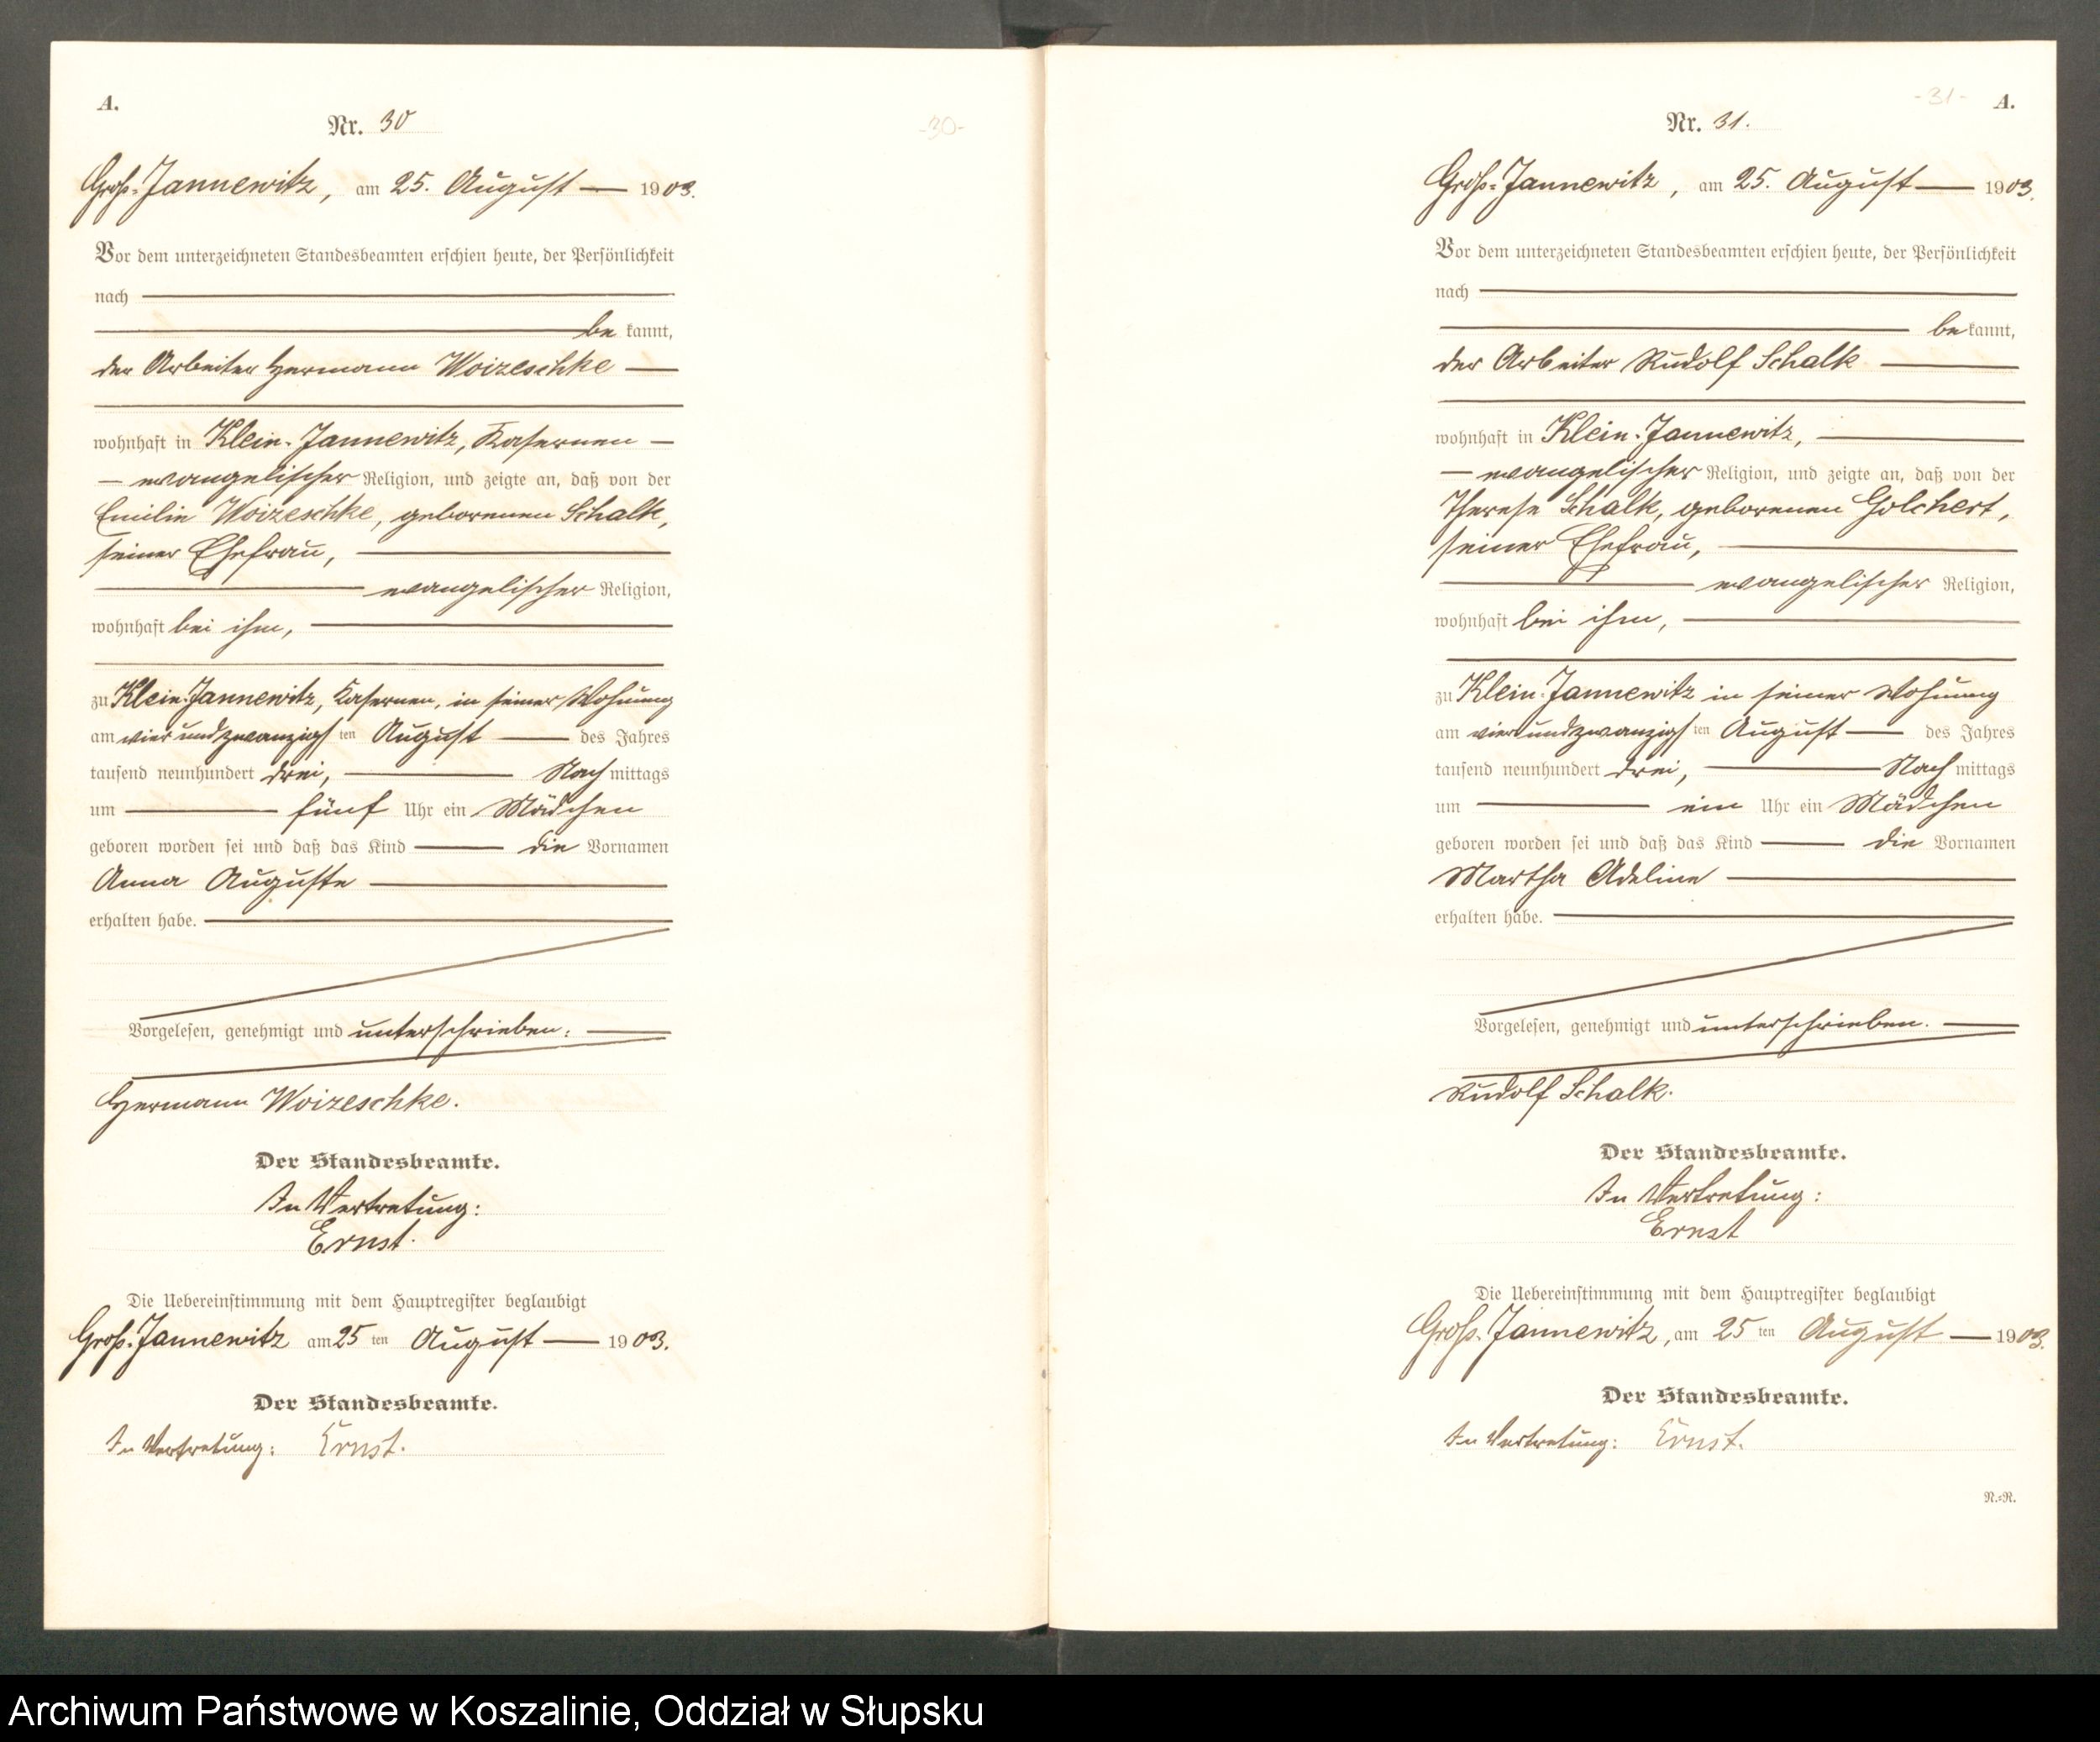 A.
Nr. 30
-30-
Groß-Jannewitz, am 25. August 1903.
Vor dem unterzeichneten Standesbeamten erschien heute, der Persönlichkeit
nach
be kannt,
der Arbeiter Hermann Woizeschke
wohnhaft in Klein-Jannewitz, Kasernen
evangelischer Religion, und zeigte an, daß von der
Emilie Woizeschke, geborenen Schalk,
seiner Ehefrau,
evangelischer Religion,
wohnhaft bei ihm,
zu Klein-Jannewitz, Kasernen, in seiner Wohnung
am vierundzwanzigsten August des Jahres
tausend neunhundert drei, Nachmittags
um fünf Uhr ein Mädchen
geboren worden sei und daß das Kind die Vornamen
Anna Auguste
erhalten habe.
Vorgelesen, genehmigt und unterschrieben:
Hermann Woizeschke.
Der Standesbeamte.
In Vertretung:
Ernst.
Die Uebereinstimmung mit dem Hauptregister beglaubigt
Groß-Jannewitz am 25 ten August 1903.
Der Standesbeamte.
In Vertretung: Ernst.
-31- A.
Nr. 31.
Groß-Jannewitz, am 25. August 1903.
Vor dem unterzeichneten Standesbeamten erschien heute, der Persönlichkeit
nach
be kannt,
der Arbeiter Rudolf Schalk
wohnhaft in Klein-Jannewitz,
evangelischer Religion, und zeigte an, daß von der
Therese Schalk, geborenen Golchert,
seiner Ehefrau,
evangelischer Religion,
wohnhaft bei ihm,
zu Klein-Jannewitz in seiner Wohnung
am vierundzwanzigsten August des Jahres
tausend neunhundert drei, Nachmittags
um ein Uhr ein Mädchen
geboren worden sei und daß das Kind die Vornamen
Martha Adeline
erhalten habe.
Vorgelesen, genehmigt und unterschrieben.
Rudolf Schalk.
Der Standesbeamte.
In Vertretung:
Ernst
Die Uebereinstimmung mit dem Hauptregister beglaubigt
Groß-Jannewitz, am 25 ten August 1903.
Der Standesbeamte.
In Vertretung: Ernst.
N.=R.
Archiwum Państwowe w Koszalinie, Oddział w Słupsku